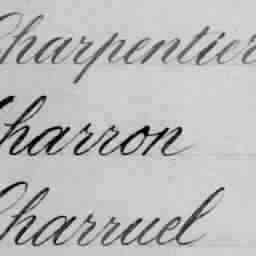 Charpentier
Charron
Charruel